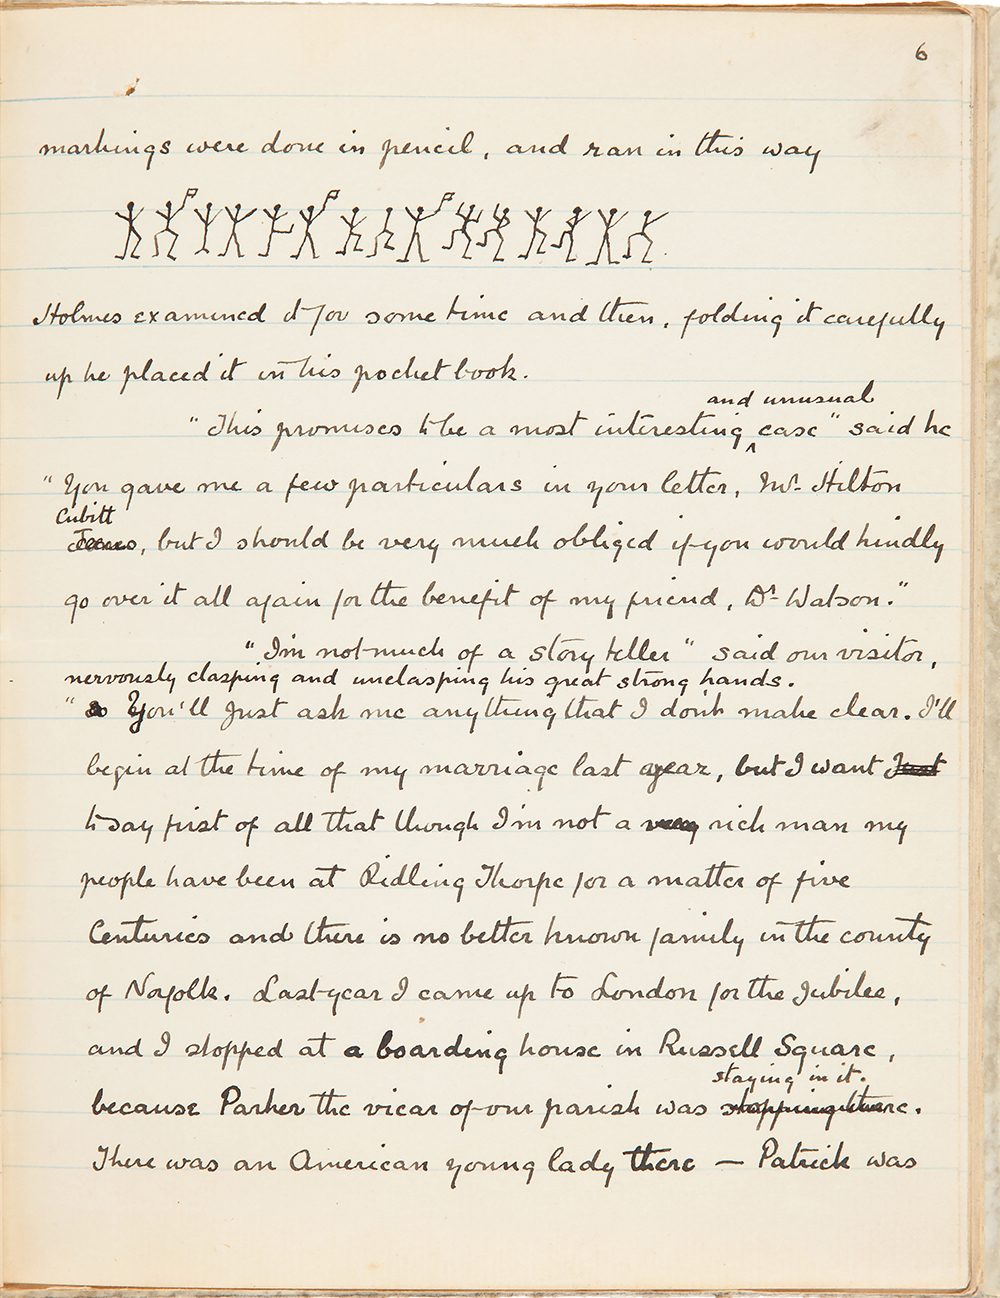 6
markings were done in pencil, and ran in this way
Holmes examined it for some time and then, folding it carefully
up he placed it in his pocket book.
and unusual
"This promises to be a most interesting ^ case" said he
"You gave me a few particulars in your letter, Mr. Hilton
Cubitt
, but I should be very much obliged if you would kindly
go over it all again for the benefit of my friend, Dr. Watson."
"I'm not much of a story teller" said our visitor,
nervously clasping and unclasping his great strong hands.
"You'll just ask me anything that I don't make clear. I'll
begin at the time of my marriage last year, but I want Just
to say first of all that though I'm not a very rich man my
people have been at Ridling Thorpe for a matter of five
Centuries and there is no better known family in the county
of Norfolk. Last year I came up to London for the Jubilee,
and I stopped at a boarding house in Russell Square,
staying in it.
because Parker the vicar of our parish was stopping there.
There was an American young lady there — Patrick was